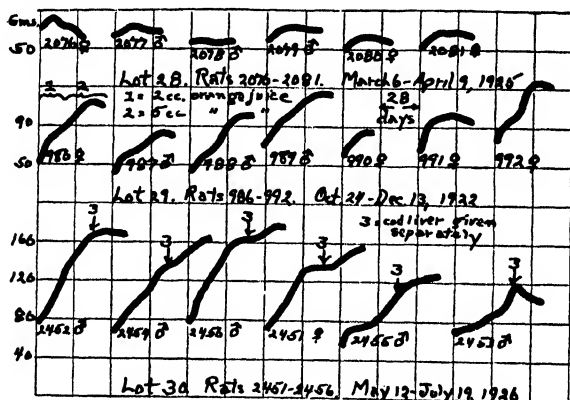 Gms.
50
2076♀ 2077♂ 2078♂ 2079♂ 2080♀ 2081♀
Lot 28. Rats 2076-2081. March 6-April 9, 1925
1 2
1 = 2cc. orange juice
2 = 5cc " "
28 days
90
50
986♀ 987♂ 988♂ 989♂ 990♀ 991♀ 992♀
Lot 29. Rats 986-992. Oct 24-Dec 13, 1922
3 = cod liver given
separately
3 3 3 3 3 3
160
120
80
2452♂ 2454♂ 2456♂ 2451♀ 2455♂ 2453♂
40
Lot 30. Rats 2451-2456. May 12-July 19, 1926